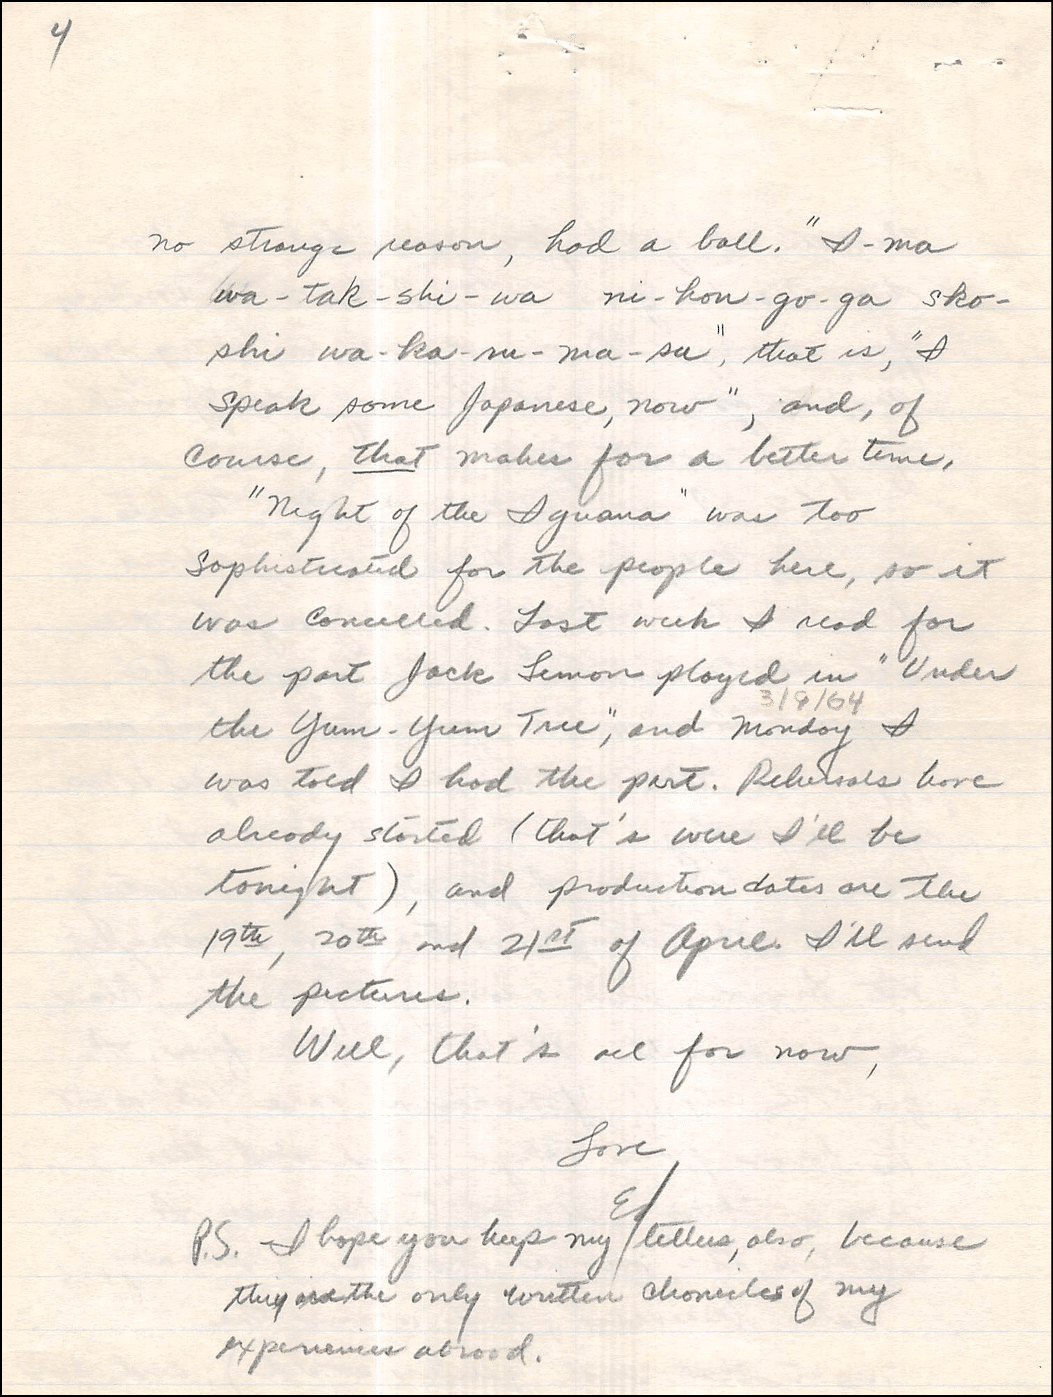 4
no strange reason, had a ball. "I-ma
wa-tak-shi-wa ni-hon-go-ga sko-
shi wa-ka-ru-ma-su", that is, "I
speak some Japanese, now", and, of
course, that makes for a better time.
"Night of the Iguana" was too
sophisticated for the people here, so it
was concelled. Last week I read for
the part Jack Lemon played in "Under
3/9/64
the Yum-Yum Tree", and Monday I
was told I had the part. Rehersals have
already started (that's were I'll be
tonight), and production dates are the
19th, 20th and 21st of April. I'll send
the pictures.
Well, that's all for now,
Love
Ed
P.S. I hope you keep my letters, also, because
they are the only written chronicles of my
experiences abroad.